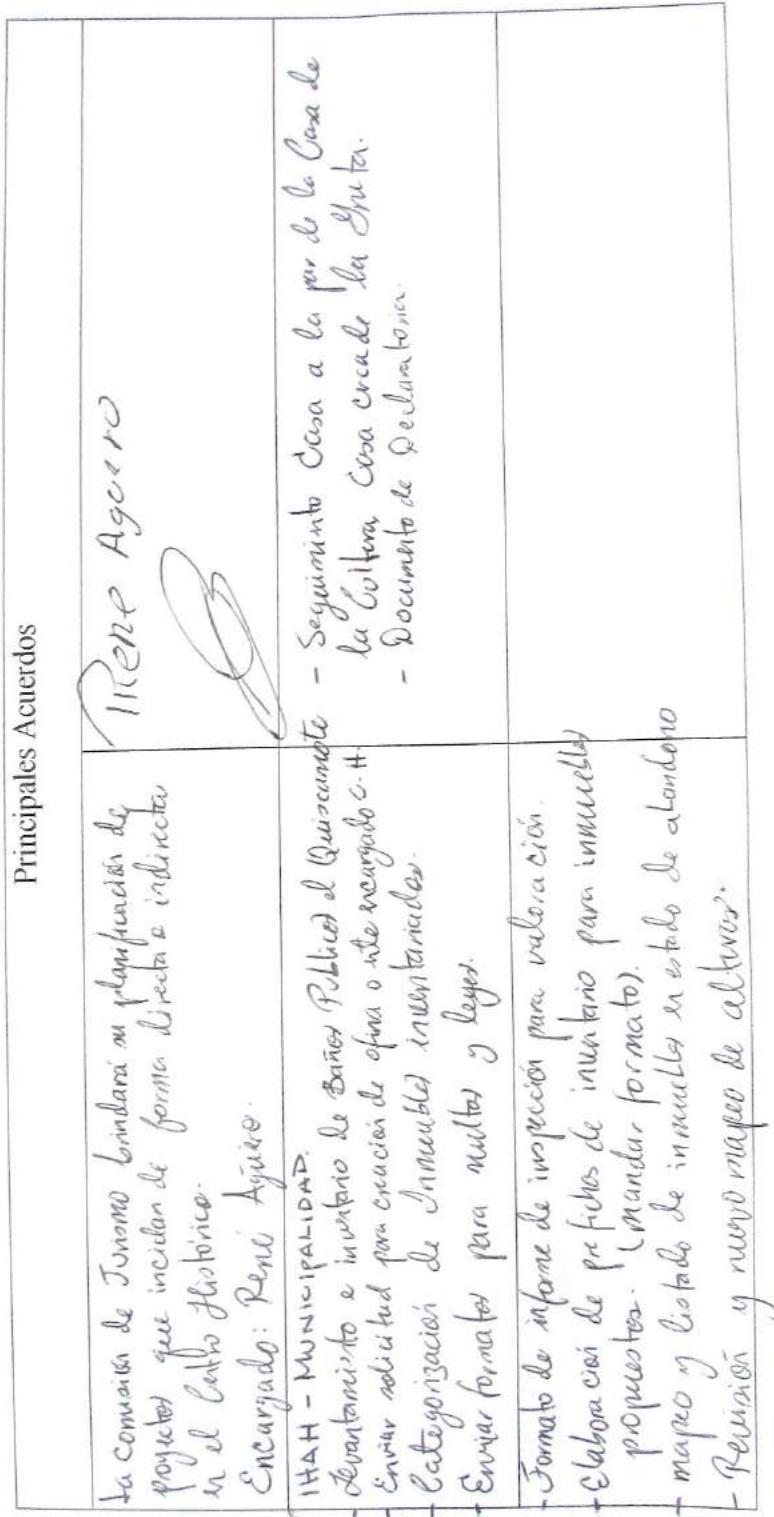 Principales Acuerdos
La comisión de Turismo brindará su planificación de
proyectos que incidan de forma directa e indirecta
en el Centro Histórico.
Encargado: René Agüero.
Rene Aguero
IHAH - MUNICIPALIDAD.
- Levantamiento e inventario de Baños Publicos el Quiscamote
- Enviar solicitud para creación de ofina o ente encargado C.H.
- Categorización de Inmuebles inventariados.
- Enviar formatos para multas y leyes.
- Seguimiento Casa a la par de la Casa de
la Cultura, casa cerca de la Gruta.
- Documento de Declaratoria.
- Formato de informe de inspección para valoración.
- Elaboración de prefichas de inventario para inmuebles
propuestos. (mandar formato).
- mapeo y listado de inmuebles en estado de abandono
- Revisión y nuevo mapeo de alturas.